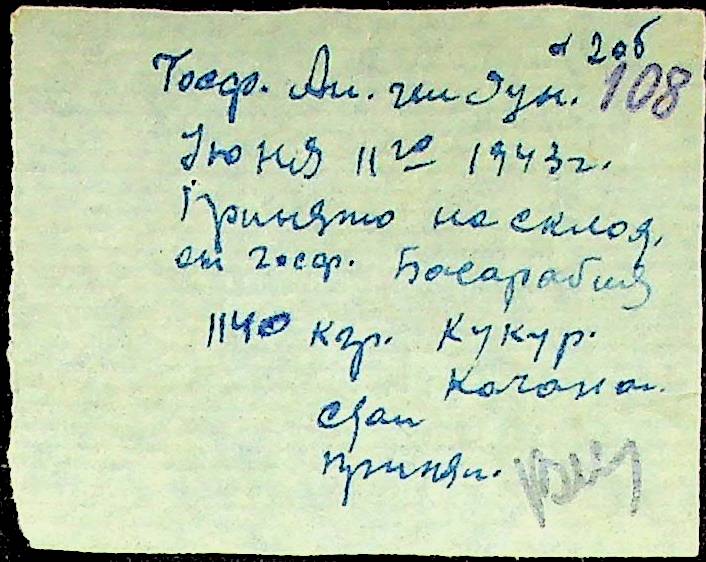 2 об
Госф. Ан. 108
Июня 11го 1943г.
Принято на склад,
от госф. Басарабия
1140 кгр. Кукур.
Качана.
Сдал
Принял.